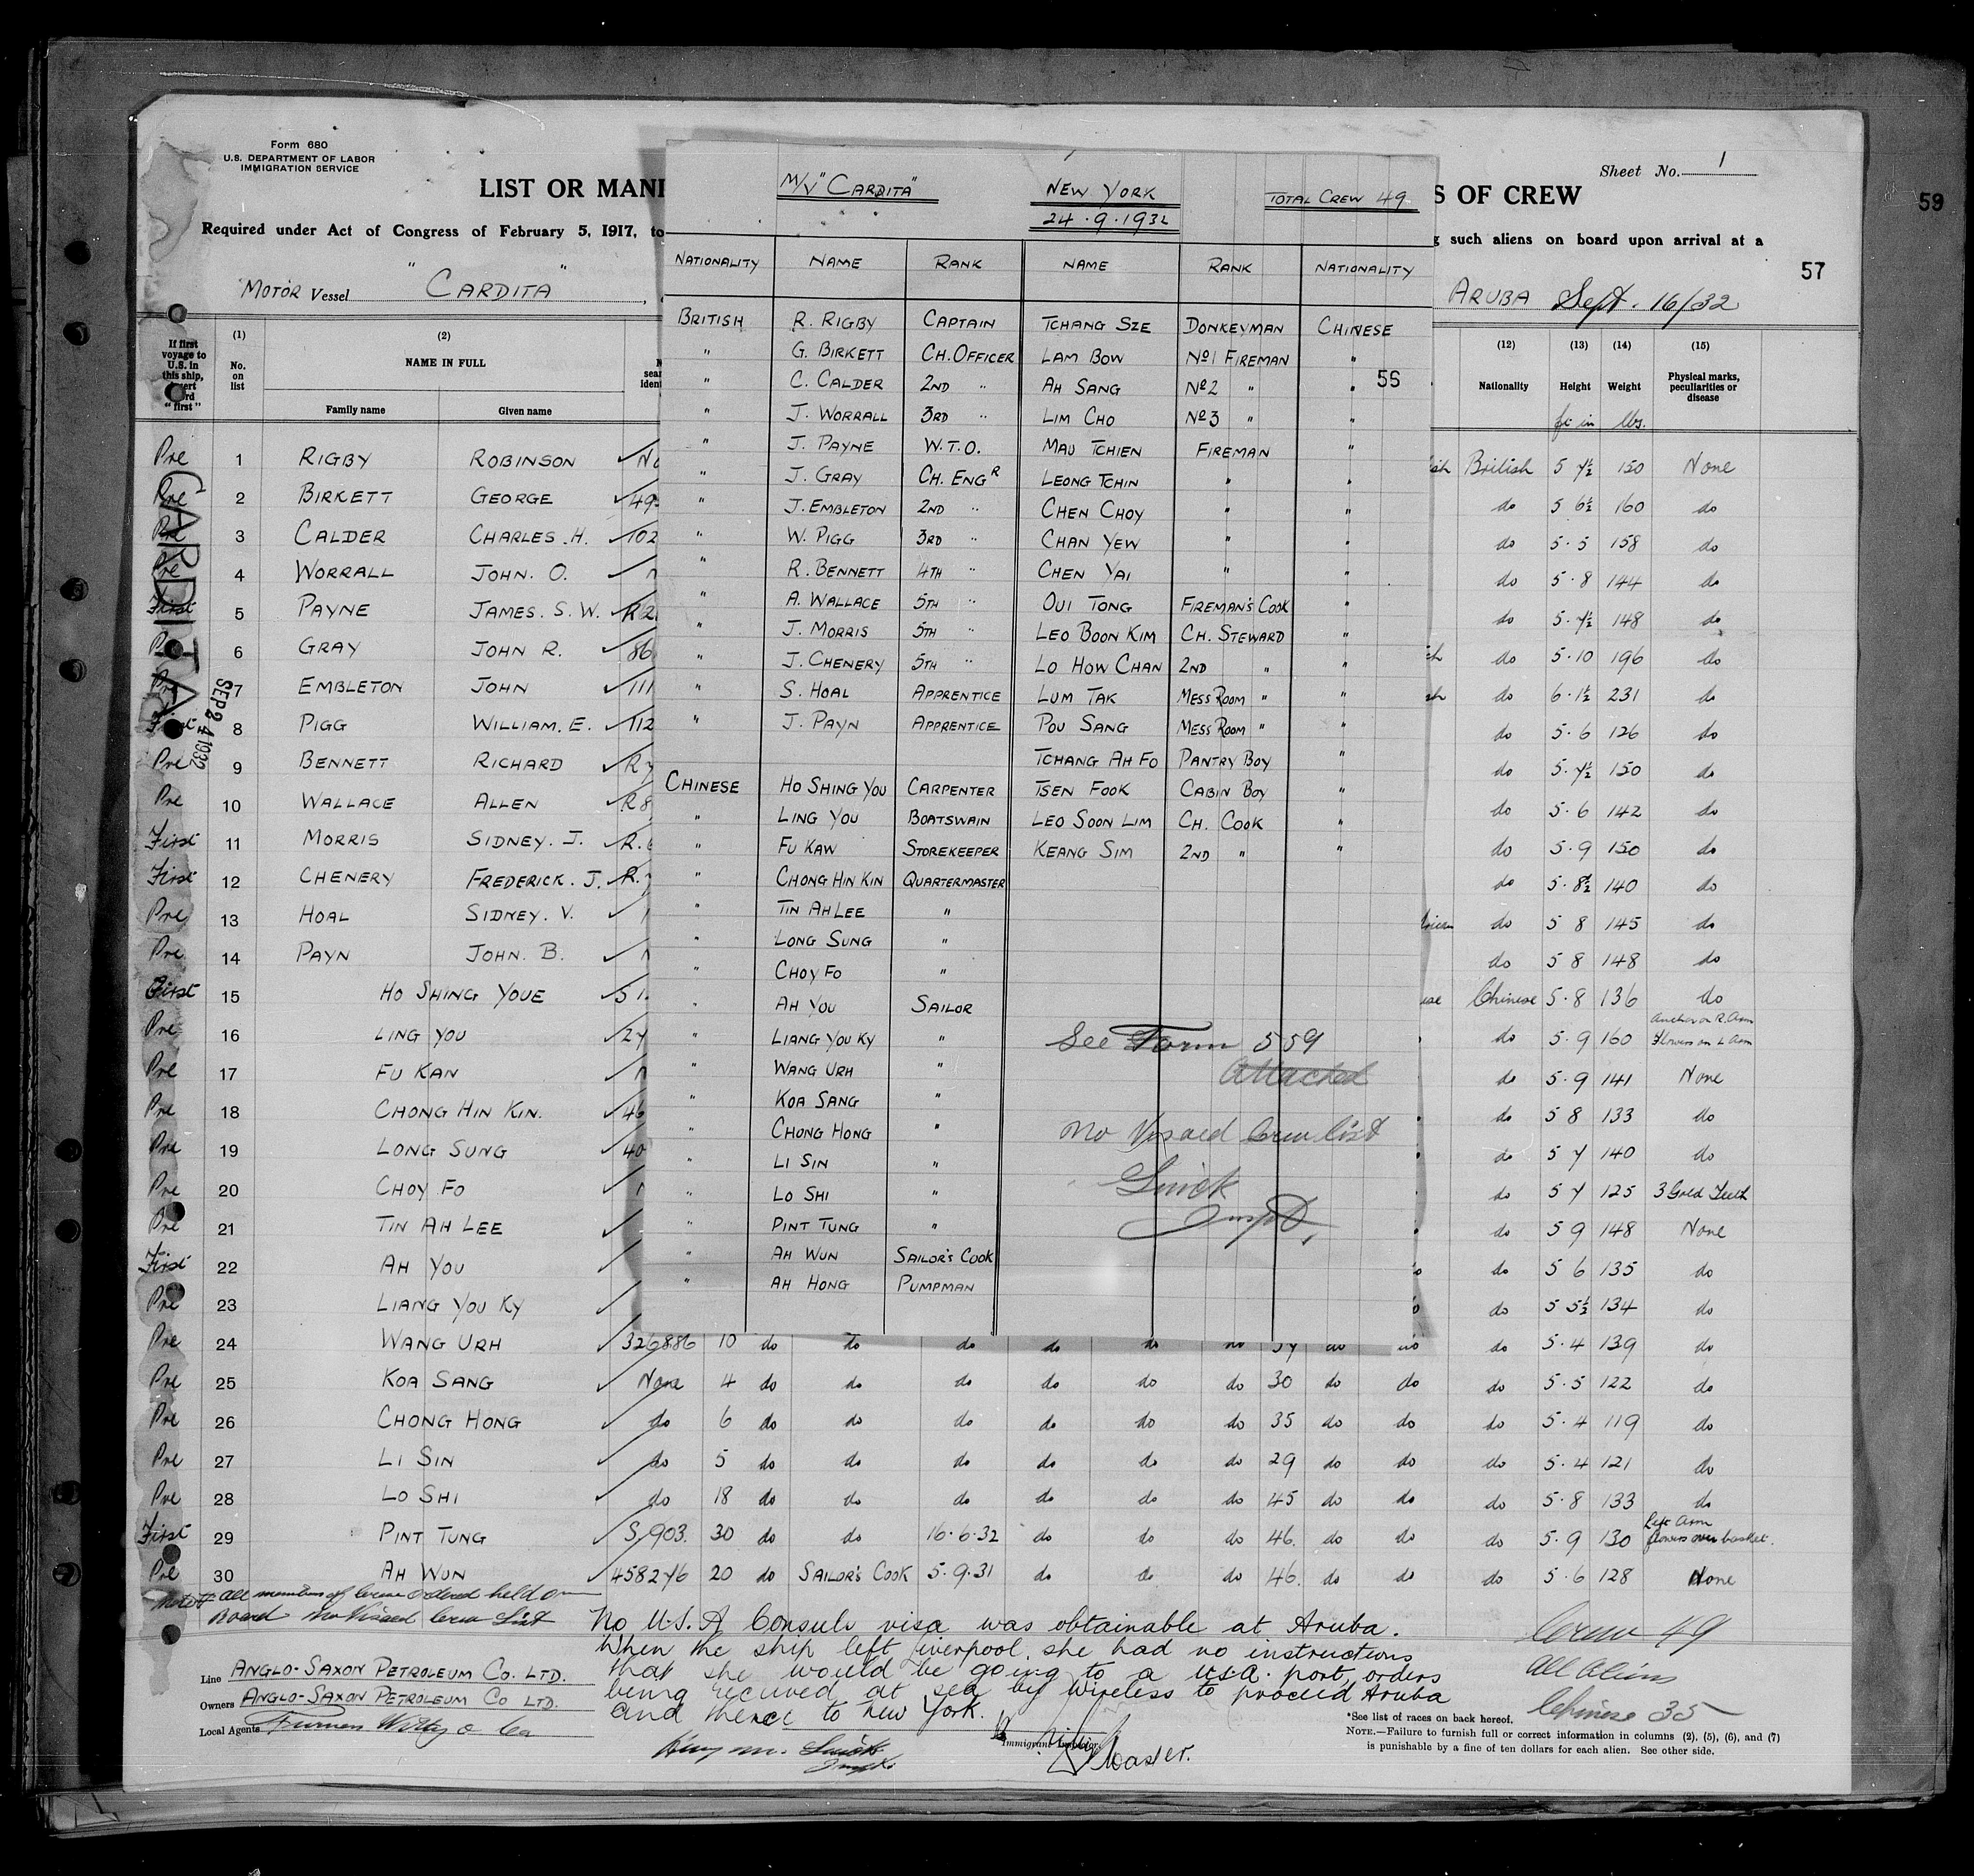 Form 680
U.S. DEPARTMENT OF LABOR
IMMIGRATION SERVICE
Sheet No. 1
LIST OR MANI
S OF CREW
59
Required under Act of Congress of February 5, 1917, to
g such aliens on board upon arrival at a
57
MOTOR Vessel "CARDITA"
ARUBA Sept. 16/32
M/V "CARDITA" NEW YORK TOTAL CREW 49
24.9.1932
NATIONALITY NAME RANK NAME RANK NATIONALITY
BRITISH R. RIGBY CAPTAIN TCHANG SZE DONKEYMAN CHINESE
" G. BIRKETT CH. OFFICER LAM BOW No1 FIREMAN "
56
" C. CALDER 2ND " AH SANG No2 " "
" J. WORRALL 3RD " LIM CHO No3 " "
" J. PAYNE W.T.O. MAU TCHIEN FIREMAN "
" J. GRAY CH. ENGR LEONG TCHIN " "
" J. EMBLETON 2ND " CHEN CHOY " "
" W. PIGG 3RD " CHAN YEW " "
" R. BENNETT 4TH " CHEN YAI " "
" A. WALLACE 5TH " OUI TONG FIREMAN'S COOK "
" J. MORRIS 5TH " LEO BOON KIM CH. STEWARD "
" J. CHENERY 5TH " LO HOW CHAN 2ND " "
" S. HOAL APPRENTICE LUM TAK MESS ROOM " "
" J. PAYN APPRENTICE POU SANG MESS ROOM " "
TCHANG AH FO PANTRY BOY "
CHINESE HO SHING YOU CARPENTER TSEN FOOK CABIN BOY "
" LING YOU BOATSWAIN LEO SOON LIM CH. COOK "
" FU KAW STOREKEEPER KEANG SIM 2ND " "
" CHONG HIN KIN QUARTERMASTER
" TIN AH LEE "
" LONG SUNG "
" CHOY FO "
" AH YOU SAILOR
" LIANG YOU KY "
" WANG URH "
" KOA SANG "
" CHONG HONG "
" LI SIN "
" LO SHI "
" PINT TUNG "
" AH WUN SAILOR'S COOK
" AH HONG PUMPMAN
See Form 559
attached
no Visaed Crew list
Inspt.
(1) (2) (12) (13) (14) (15)
If first voyage to U.S. in this ship, insert word "first"
No. on list
NAME IN FULL
Family name Given name
Nationality Height Weight Physical marks, peculiarities or disease
ft in lbs.
CARDITA
SEP 24 1932
Pre 1 RIGBY ROBINSON No British 5 7½ 150 None
Pre 2 BIRKETT GEORGE 49 do 5 6½ 160 do
Pre 3 CALDER CHARLES. H. 102 do 5.5 158 do
Pre 4 WORRALL JOHN. O. do 5.8 144 do
First 5 PAYNE JAMES. S. W. R2 do 5.7½ 148 do
Pre 6 GRAY JOHN R. 86 do 5.10 196 do
Pre 7 EMBLETON JOHN 111 do 6.1½ 231 do
First 8 PIGG WILLIAM. E. 112 do 5.6 126 do
Pre 9 BENNETT RICHARD R7 do 5.7½ 150 do
Pre 10 WALLACE ALLEN R8 do 5.6 142 do
First 11 MORRIS SIDNEY. J. R.6 do 5.9 150 do
First 12 CHENERY FREDERICK. J. R.7 do 5.8½ 140 do
Pre 13 HOAL SIDNEY. V. do 5 8 145 do
Pre 14 PAYN JOHN. B. do 5 8 148 do
First 15 HO SHING YOUE 51 Chinese 5.8 136 do
Pre 16 LING YOU 27 do 5.9 160 Anchor on R. Arm Flowers on L Arm
Pre 17 FU KAN do 5.9 141 None
Pre 18 CHONG HIN KIN. 46 do 5 8 133 do
Pre 19 LONG SUNG 40 do 5 7 140 do
Pre 20 CHOY FO do 5 7 125 3 Gold Teeth
Pre 21 TIN AH LEE do 5 9 148 None
First 22 AH YOU do 5 6 135 do
Pre 23 LIANG YOU KY do 5 5½ 134 do
Pre 24 WANG URH 326886 10 do do do do do do 37 do do do 5.4 139 do
Pre 25 KOA SANG None 4 do do do do do do 30 do do do 5.5 122 do
Pre 26 CHONG HONG do 6 do do do do do do 35 do do do 5.4 119 do
Pre 27 LI SIN do 5 do do do do do do 29 do do do 5.4 121 do
Pre 28 LO SHI do 18 do do do do do do 45 do do do 5.8 133 do
First 29 PINT TUNG S/903. 30 do do 16.6.32 do do do 46. do do do 5.9 130 Left Arm flowers over basket.
Pre 30 AH WUN 458276 20 do SAILOR'S COOK 5.9.31 do do do 46. do do do 5.6 128 None
Note# All members of Crew ordered held on
Board No Visaed Crew List
No U.S.A Consuls visa was obtainable at Aruba.
When the ship left Liverpool, she had no instructions
that she would be going to a U.S.A. port, orders
being received at sea by wireless to proceed Aruba
and thence to New York.
Crew 49
All Aliens
Chinese 35
Line ANGLO-SAXON PETROLEUM CO. LTD.
Owners ANGLO-SAXON PETROLEUM CO LTD.
Local Agents
Immigrant Inspector.
Master.
*See list of races on back hereof.
NOTE.—Failure to furnish full or correct information in columns (2), (5), (6), and (7)
is punishable by a fine of ten dollars for each alien. See other side.